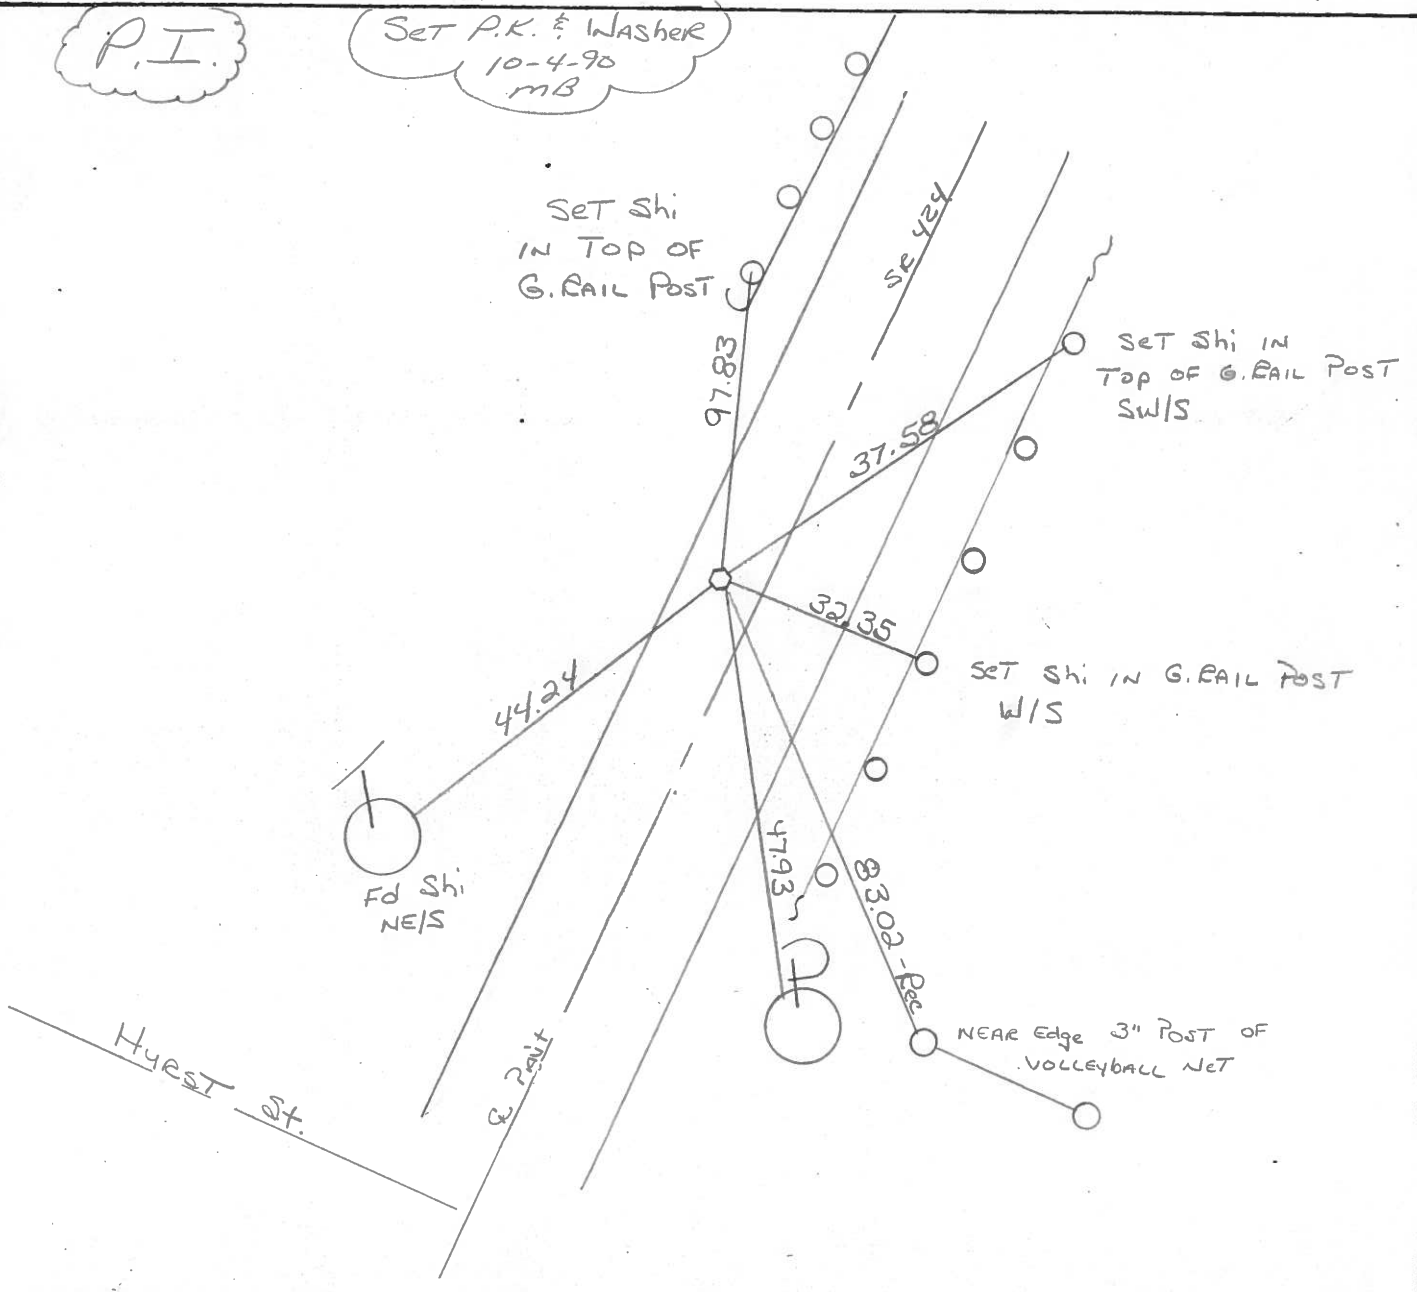 P.I.
SET P.K. & WASHER
10-4-90
MB
SET Shi
IN TOP OF
G.RAIL POST
SR 424
97.83
SET Shi IN
TOP OF G.RAIL POST
SW/S
37.58
32.35
SET Shi IN G.RAIL POST
W/S
44.24
Fd Shi
NE/S
47.93
83.02-Rec
NEAR Edge 3" POST OF
VOLLEYBALL NET
HURST St.
℄ Paint